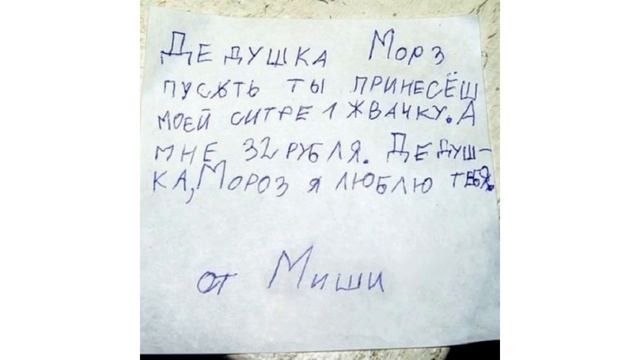 ДЕДУШКА МОРЗ
ПУСЬТЬ ТЫ ПРИНЕСЁШ
МОЕЙ СИТРЕ 1 ЖВАЧКУ. А
МНЕ 32 РУБЛЯ. ДЕДУШ-
КА, МОРОЗ Я ЛЮБЛЮ ТЕБЯ.
ОТ МИШИ